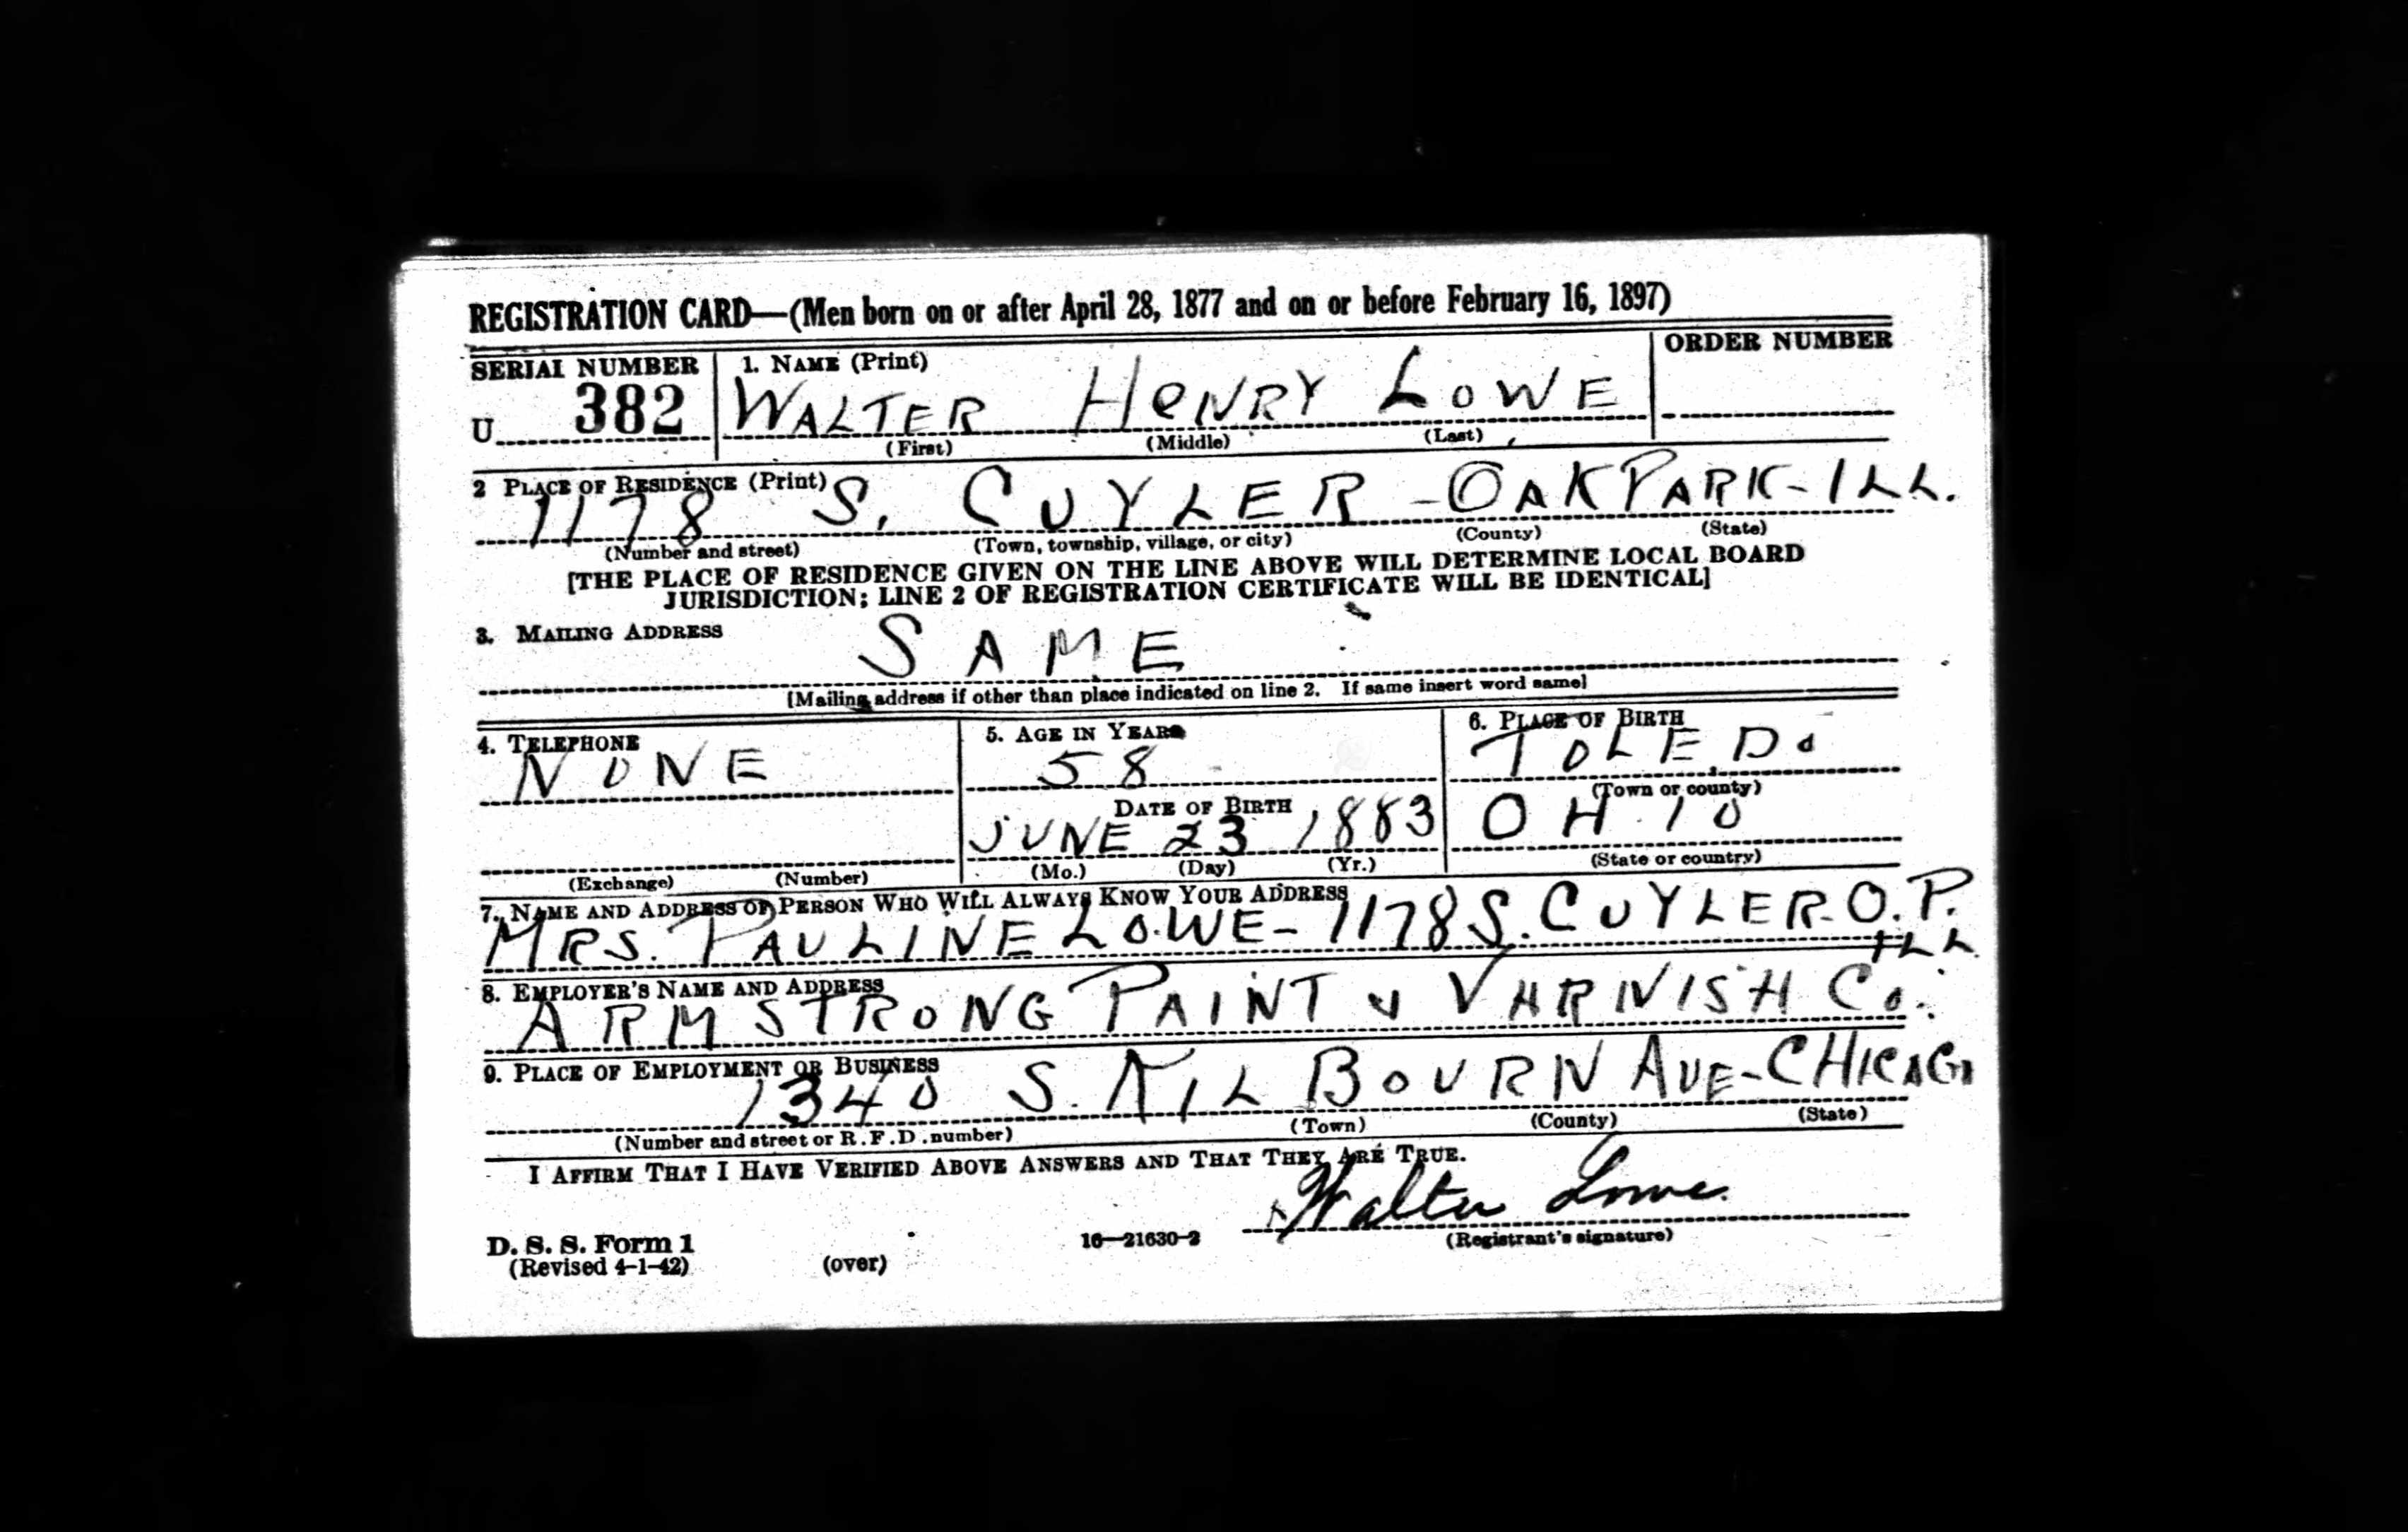 REGISTRATION CARD—(Men born on or after April 28, 1877 and on or before February 16, 1897)
SERIAL NUMBER 1. NAME (Print) ORDER NUMBER
U 382 WALTER HENRY LOWE
(First) (Middle) (Last)
2 PLACE OF RESIDENCE (Print)
1178 S. CUYLER - OAK PARK - ILL.
(Number and street) (Town, township, village, or city) (County) (State)
[THE PLACE OF RESIDENCE GIVEN ON THE LINE ABOVE WILL DETERMINE LOCAL BOARD
JURISDICTION; LINE 2 OF REGISTRATION CERTIFICATE WILL BE IDENTICAL]
3. MAILING ADDRESS
SAME
[Mailing address if other than place indicated on line 2. If same insert word same]
4. TELEPHONE 5. AGE IN YEARS 6. PLACE OF BIRTH
NONE 58 TOLEDO
DATE OF BIRTH (Town or county)
JUNE 23 1883 OHIO
(Exchange) (Number) (Mo.) (Day) (Yr.) (State or country)
7. NAME AND ADDRESS OF PERSON WHO WILL ALWAYS KNOW YOUR ADDRESS
MRS. PAULINE LOWE - 1178 S. CUYLER - O. P.
ILL
8. EMPLOYER'S NAME AND ADDRESS
ARMSTRONG PAINT & VARNISH Co.
9. PLACE OF EMPLOYMENT OR BUSINESS
1340 S. KILBOURN AVE - CHICAGO
(Number and street or R. F. D. number) (Town) (County) (State)
I AFFIRM THAT I HAVE VERIFIED ABOVE ANSWERS AND THAT THEY ARE TRUE.
Walter Lowe
D. S. S. Form 1 16—21630-2 (Registrant's signature)
(Revised 4-1-42) (over)